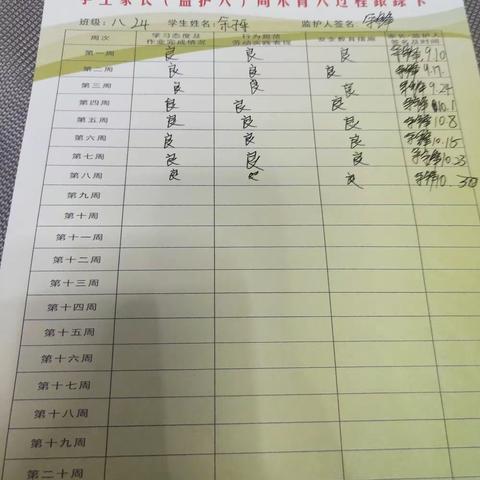 学生家长（监护人）周末育人过程跟踪卡
班级：八.24 学生姓名： 监护人签名：
周次 学习态度及作业完成情况 行为规范劳动实践表现 安全教育措施 家长（监护人）签名及时间
第一周 良 良 良 9.10
第二周 良 良 良 9.17
第三周 良 良 良 9.24
第四周 良 良 良 10.1
第五周 良 良 良 10.8
第六周 良 良 良 10.15
第七周 良 良 良 10.23
第八周 良 良 良 10.30
第九周
第十周
第十一周
第十二周
第十三周
第十四周
第十五周
第十六周
第十七周
第十八周
第十九周
第二十周